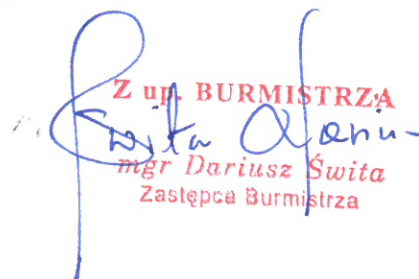 Z up. BURMISTRZA
Świta Dariu-
mgr Dariusz Świta
Zastępca Burmistrza